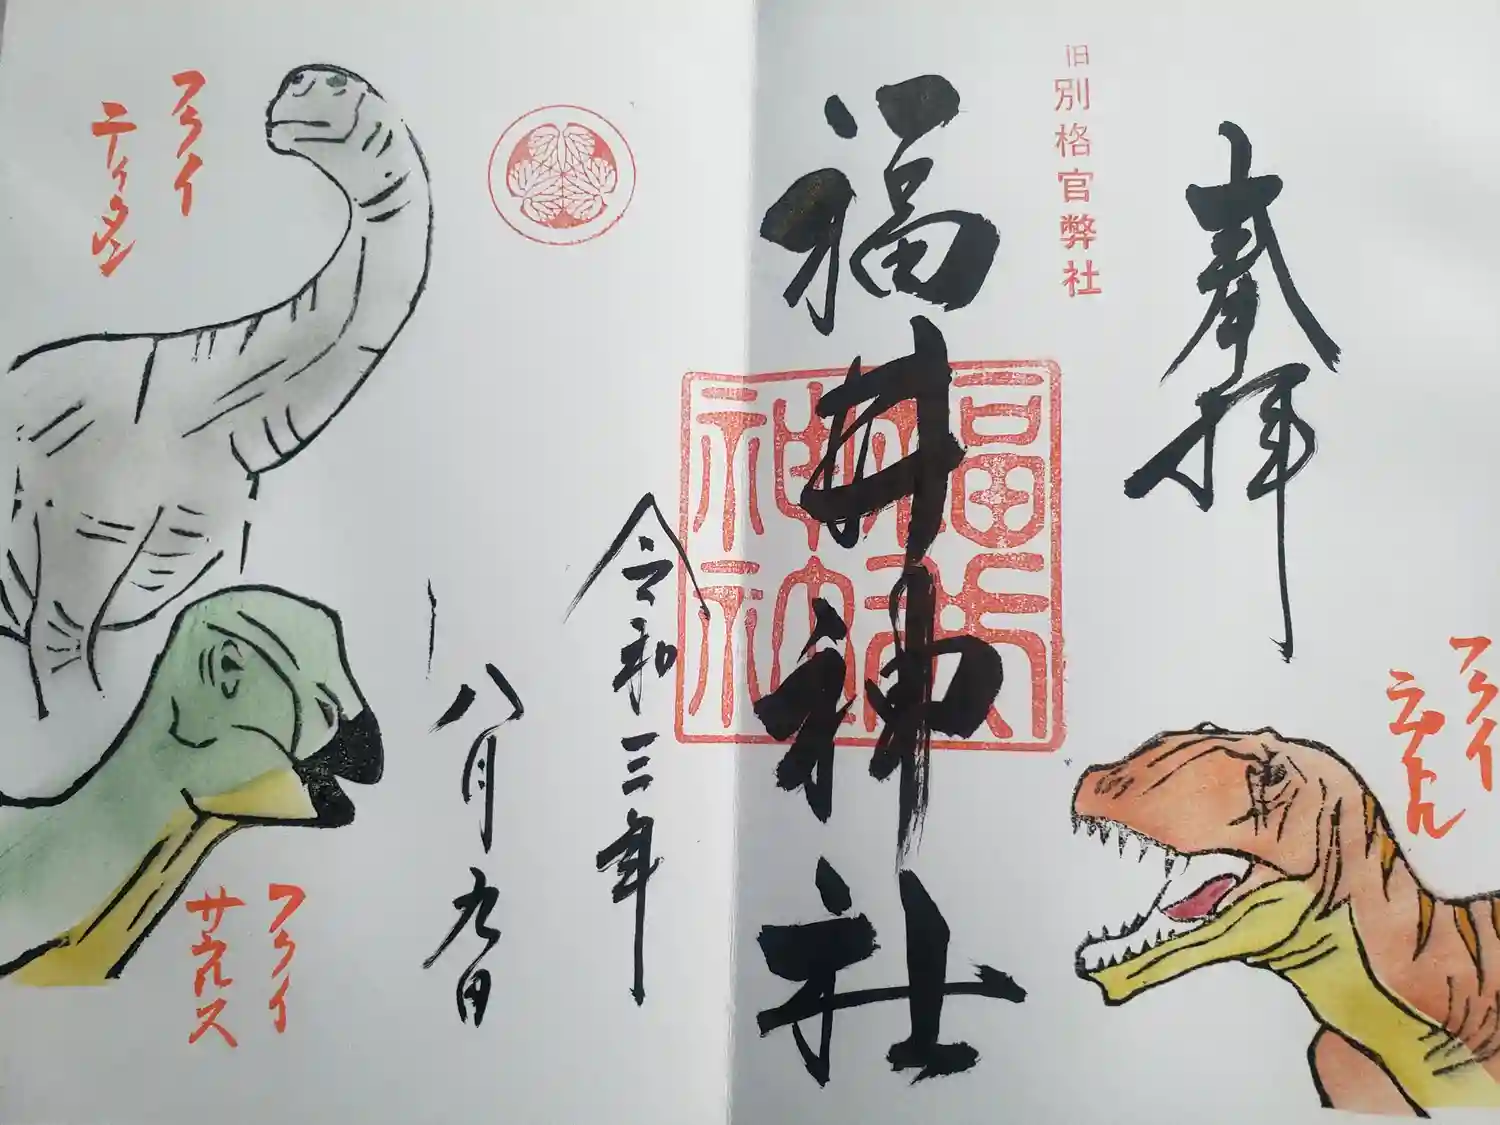 奉拝
旧別格官弊社
福井神社
福井
神社
令和三年
八月九日
フクイ
ラプトル
フクイ
サウルス
フクイ
ティタン